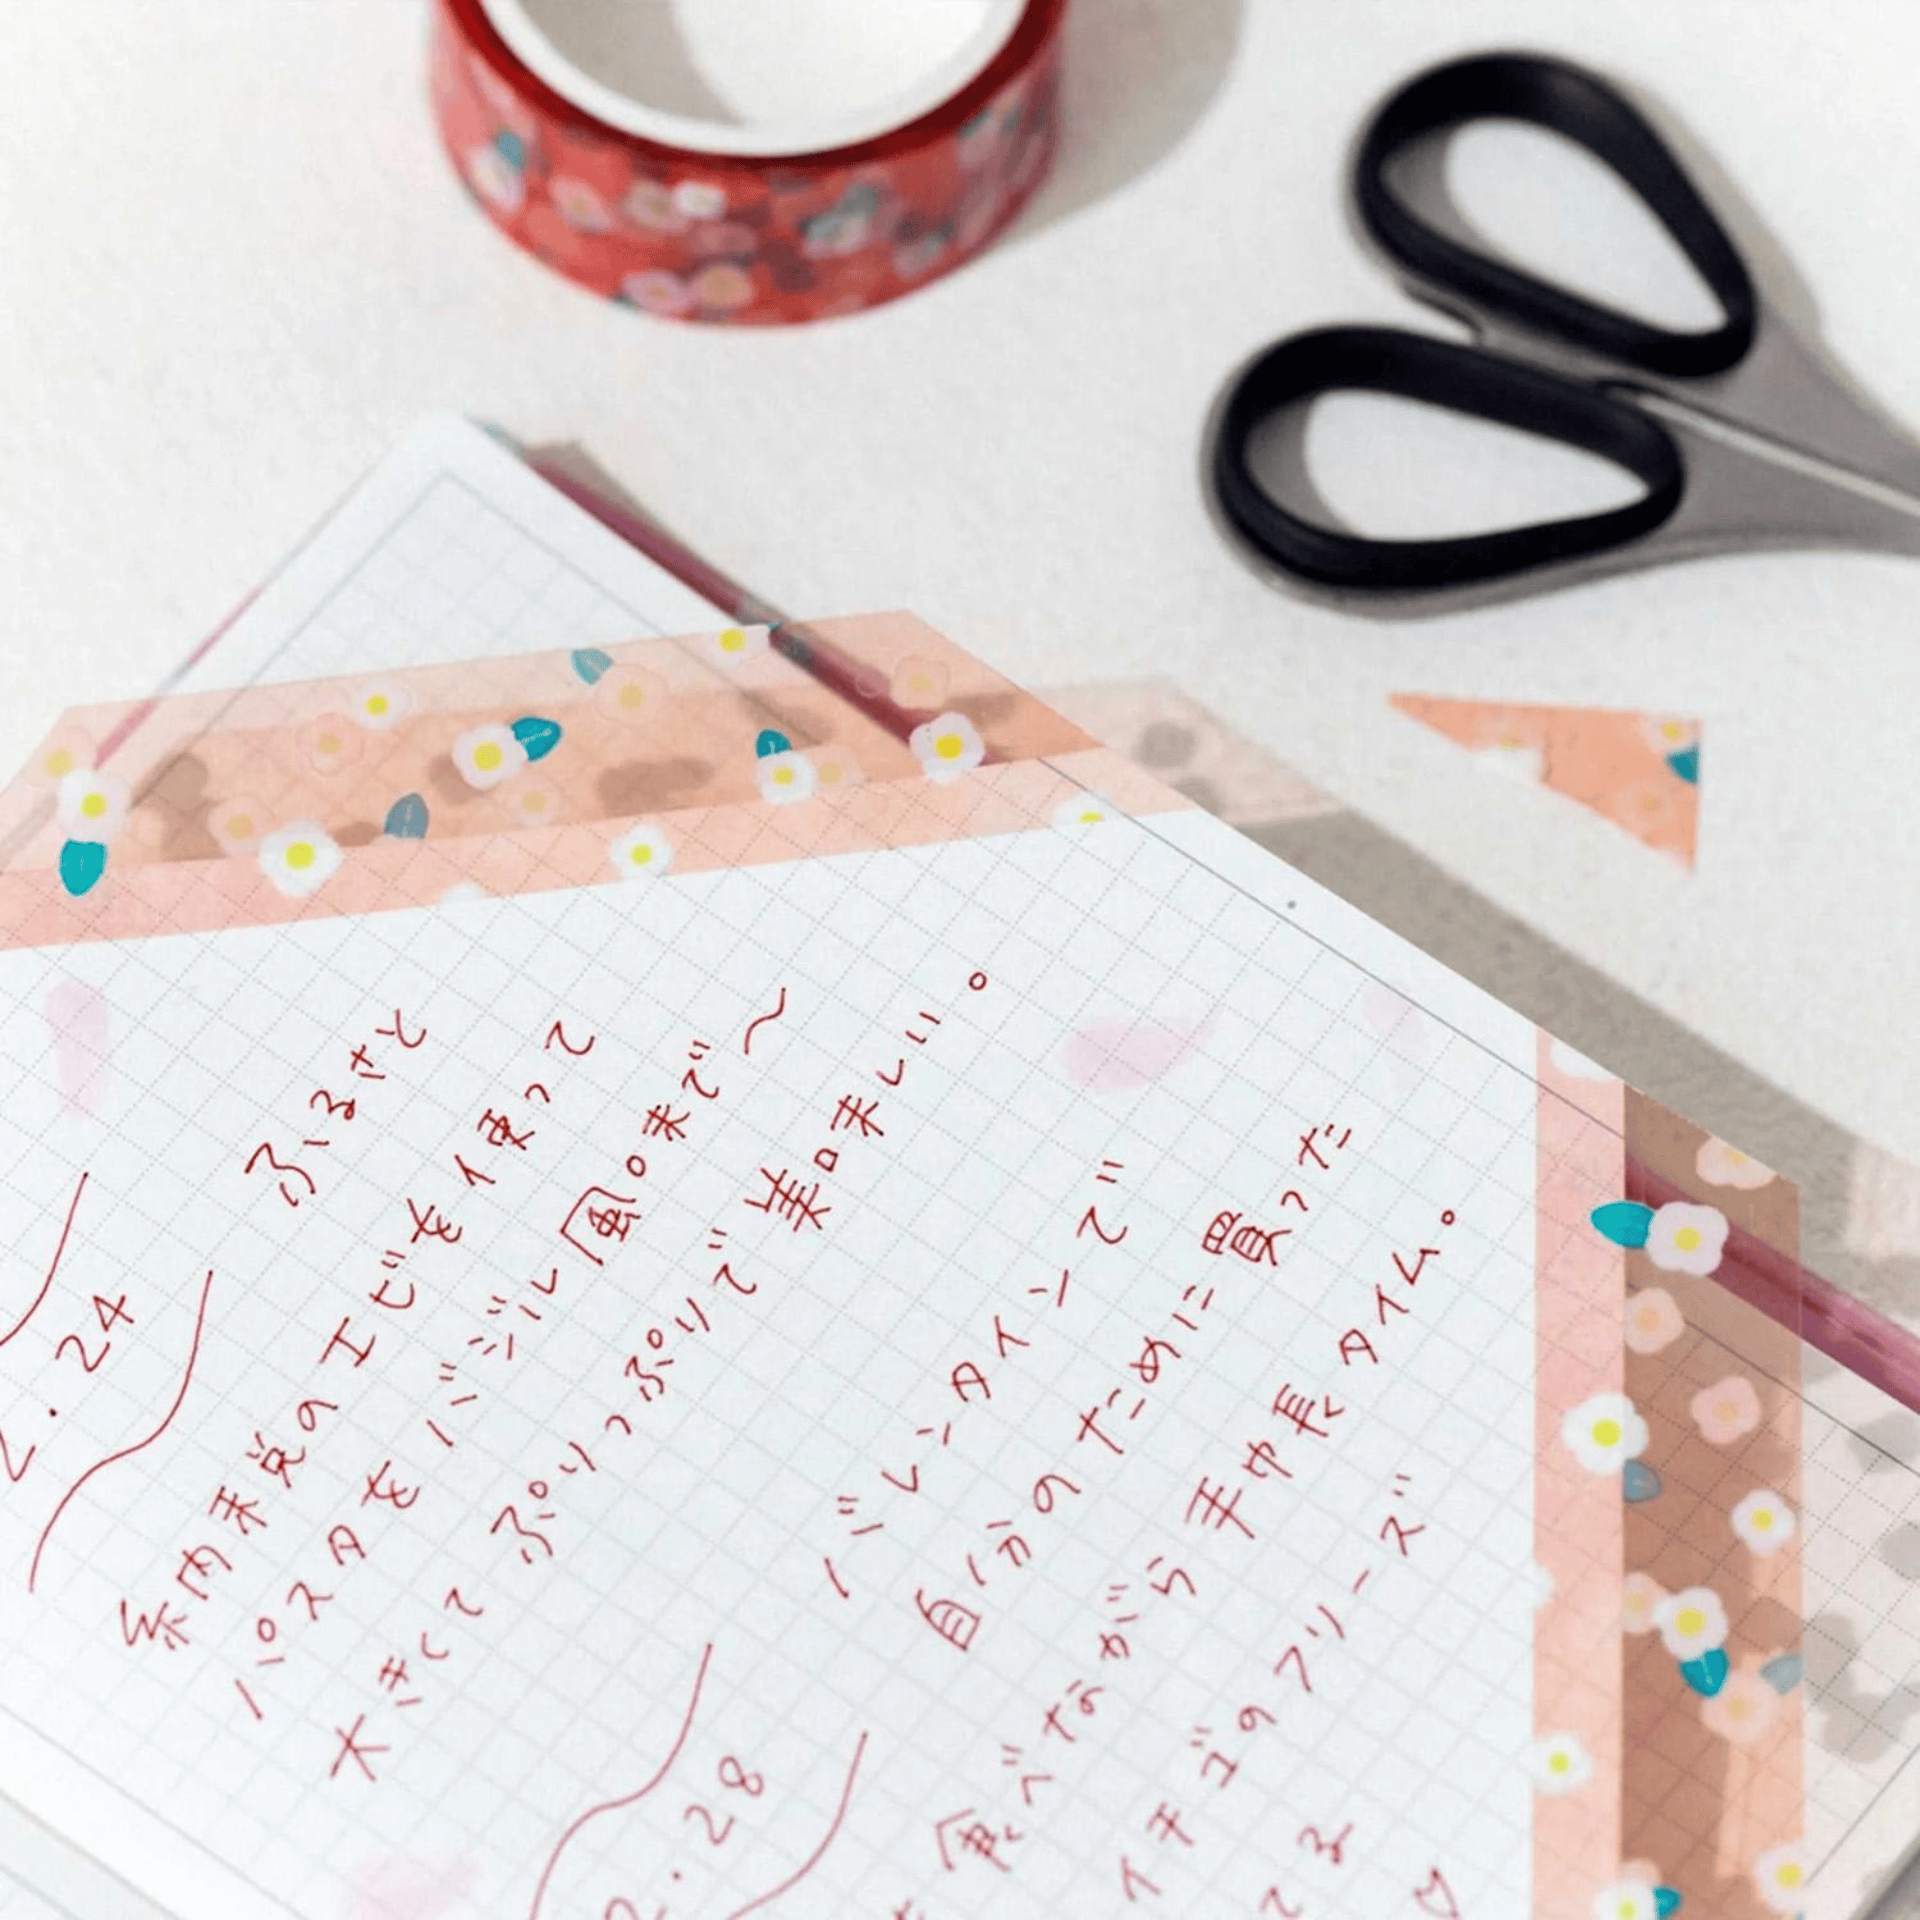 2.24
ふるさと
納税のエビを使って
パスタをバジル風味で〜
大きくてぷりっぷりで美味しい。
2.28
バレンタインで
自分のために買った
食べながら手帳タイム。
イチゴのフリーズ
てる